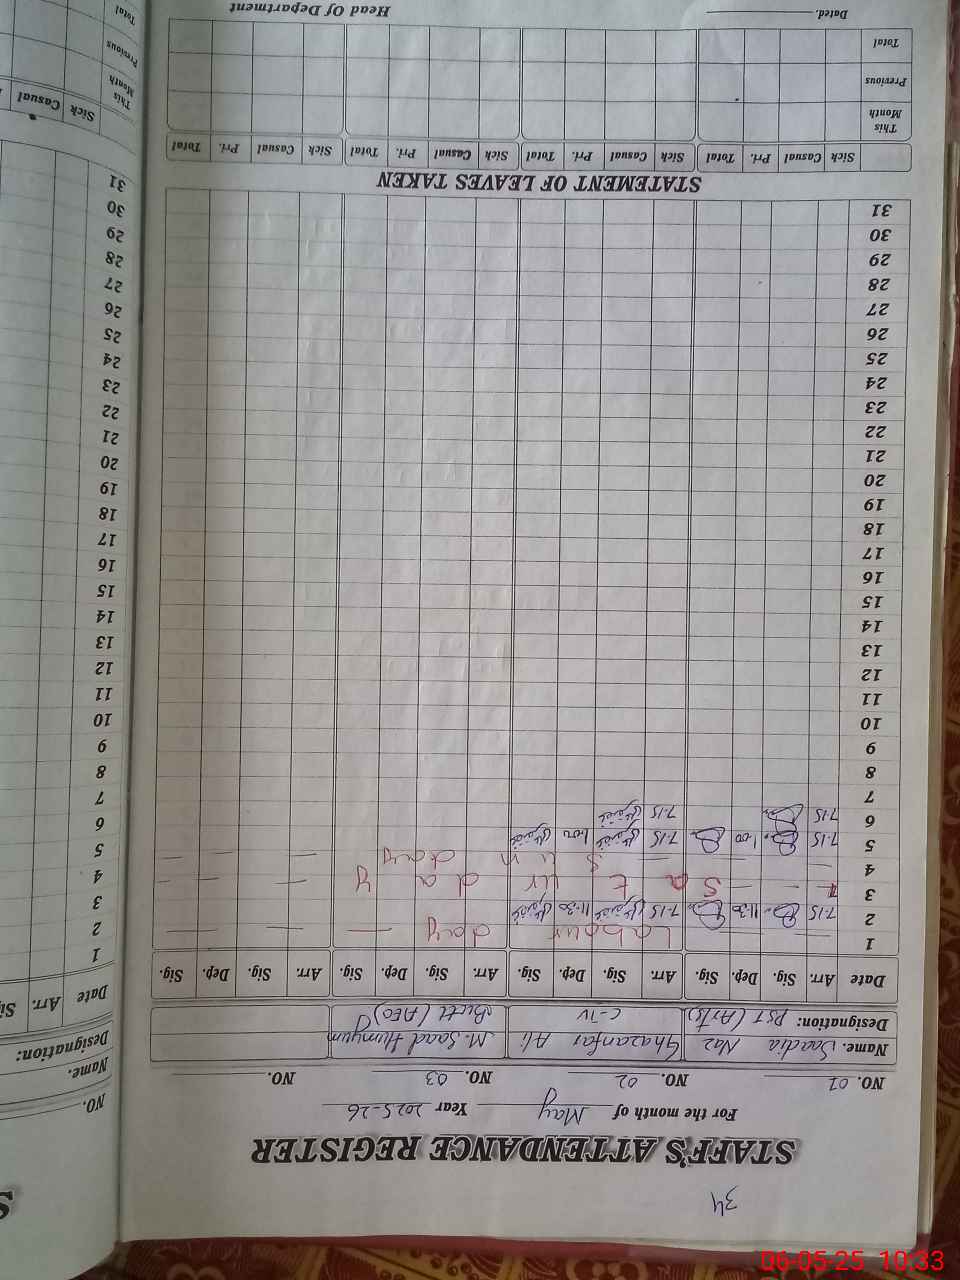 34
STAFF'S ATTENDANCE REGISTER
For the month of May Year 2025-26
NO. 01 NO. 02 NO. 03 NO.
Name. Saadia Naz Ghazanfar Ali M. Saad Humyum
Designation: PST (Arts) C-IV Butt (AEO)
Date Arr. Sig. Dep. Sig. Arr. Sig. Dep. Sig. Arr. Sig. Dep. Sig. Arr. Sig. Dep. Sig.
1 Labour day
2 7-15 11-30 7-15 11-30
3 Saturday
4 Sunday
5 7-15 1.00 7-15 1.00
6 7-15 7-15
7
8
9
10
11
12
13
14
15
16
17
18
19
20
21
22
23
24
25
26
27
28
29
30
31
STATEMENT OF LEAVES TAKEN
Sick Casual Pri. Total Sick Casual Pri. Total Sick Casual Pri. Total Sick Casual Pri. Total
This Month
Previous
Total
Dated. Head Of Department
S
NO.
Name.
Designation:
Date Arr. Sig
1
2
3
4
5
6
7
8
9
10
11
12
13
14
15
16
17
18
19
20
21
22
23
24
25
26
27
28
29
30
31
Sick Casual
This Month
Previous
Total
06-05-25 10:33